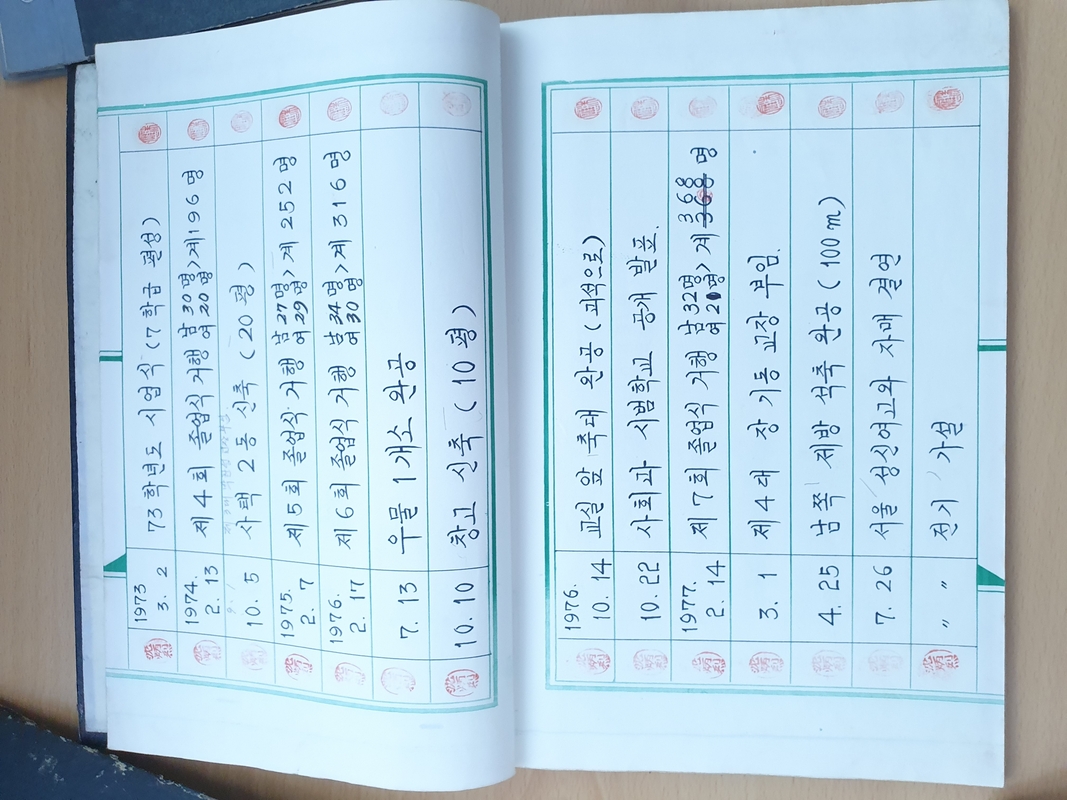 1973 3. 2 73학년도 시업식 (7학급 편성)
1974. 2. 13 제4회 졸업식 거행 남 30명 여 20명 > 계 196명
10. 5 사택 2동 신축 (20평)
1975. 2. 7 제5회 졸업식 거행 남 27명 여 29명 > 계 252명
1976. 2. 17 제6회 졸업식 거행 남 34명 여 30명 > 계 316명
7. 13 우물 1개소 완공
10. 10 창고 신축 (10평)
1976. 10. 14 교실 앞 축대 완공 (괴석으로)
10. 22 사회과 시범학교 공개 발표.
1977. 2. 14 제7회 졸업식 거행 남 32명 여 20명 > 계 368명
3. 1 제4대 장기동 교장 부임.
4. 25 남쪽 제방 석축 완공 (100m)
7. 26 서울 성신여고와 자매 결연
〃 〃 전기 가설